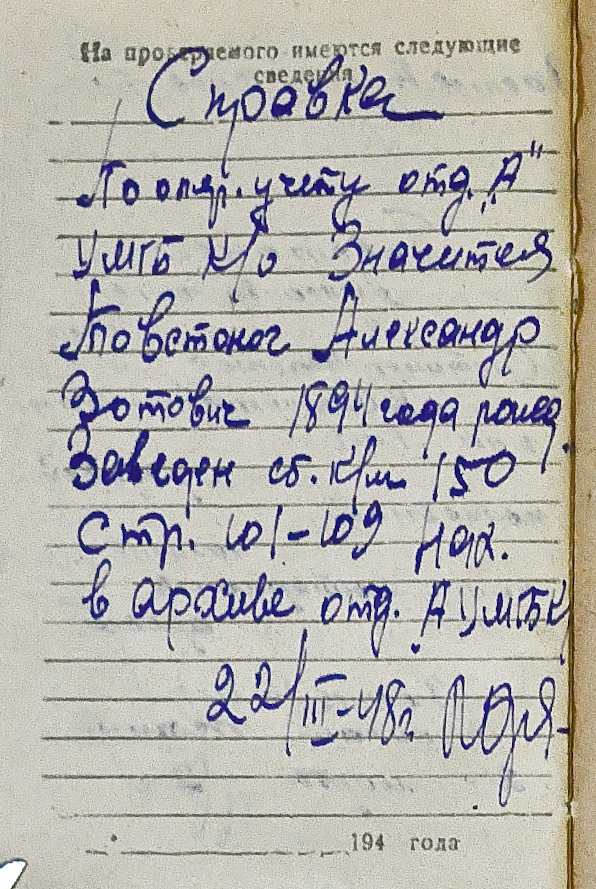 На проверяемого имеются следующие
сведения
Справка
По опер. учету отд. „А"
УМГБ К/о Значится
Товстоног Александр
Зотович 1894 года рожд.
Заведен сб. к/м 150
Стр. 101-109 нах.
в архиве отд. А УМГБК
22/III-48г.
194 года